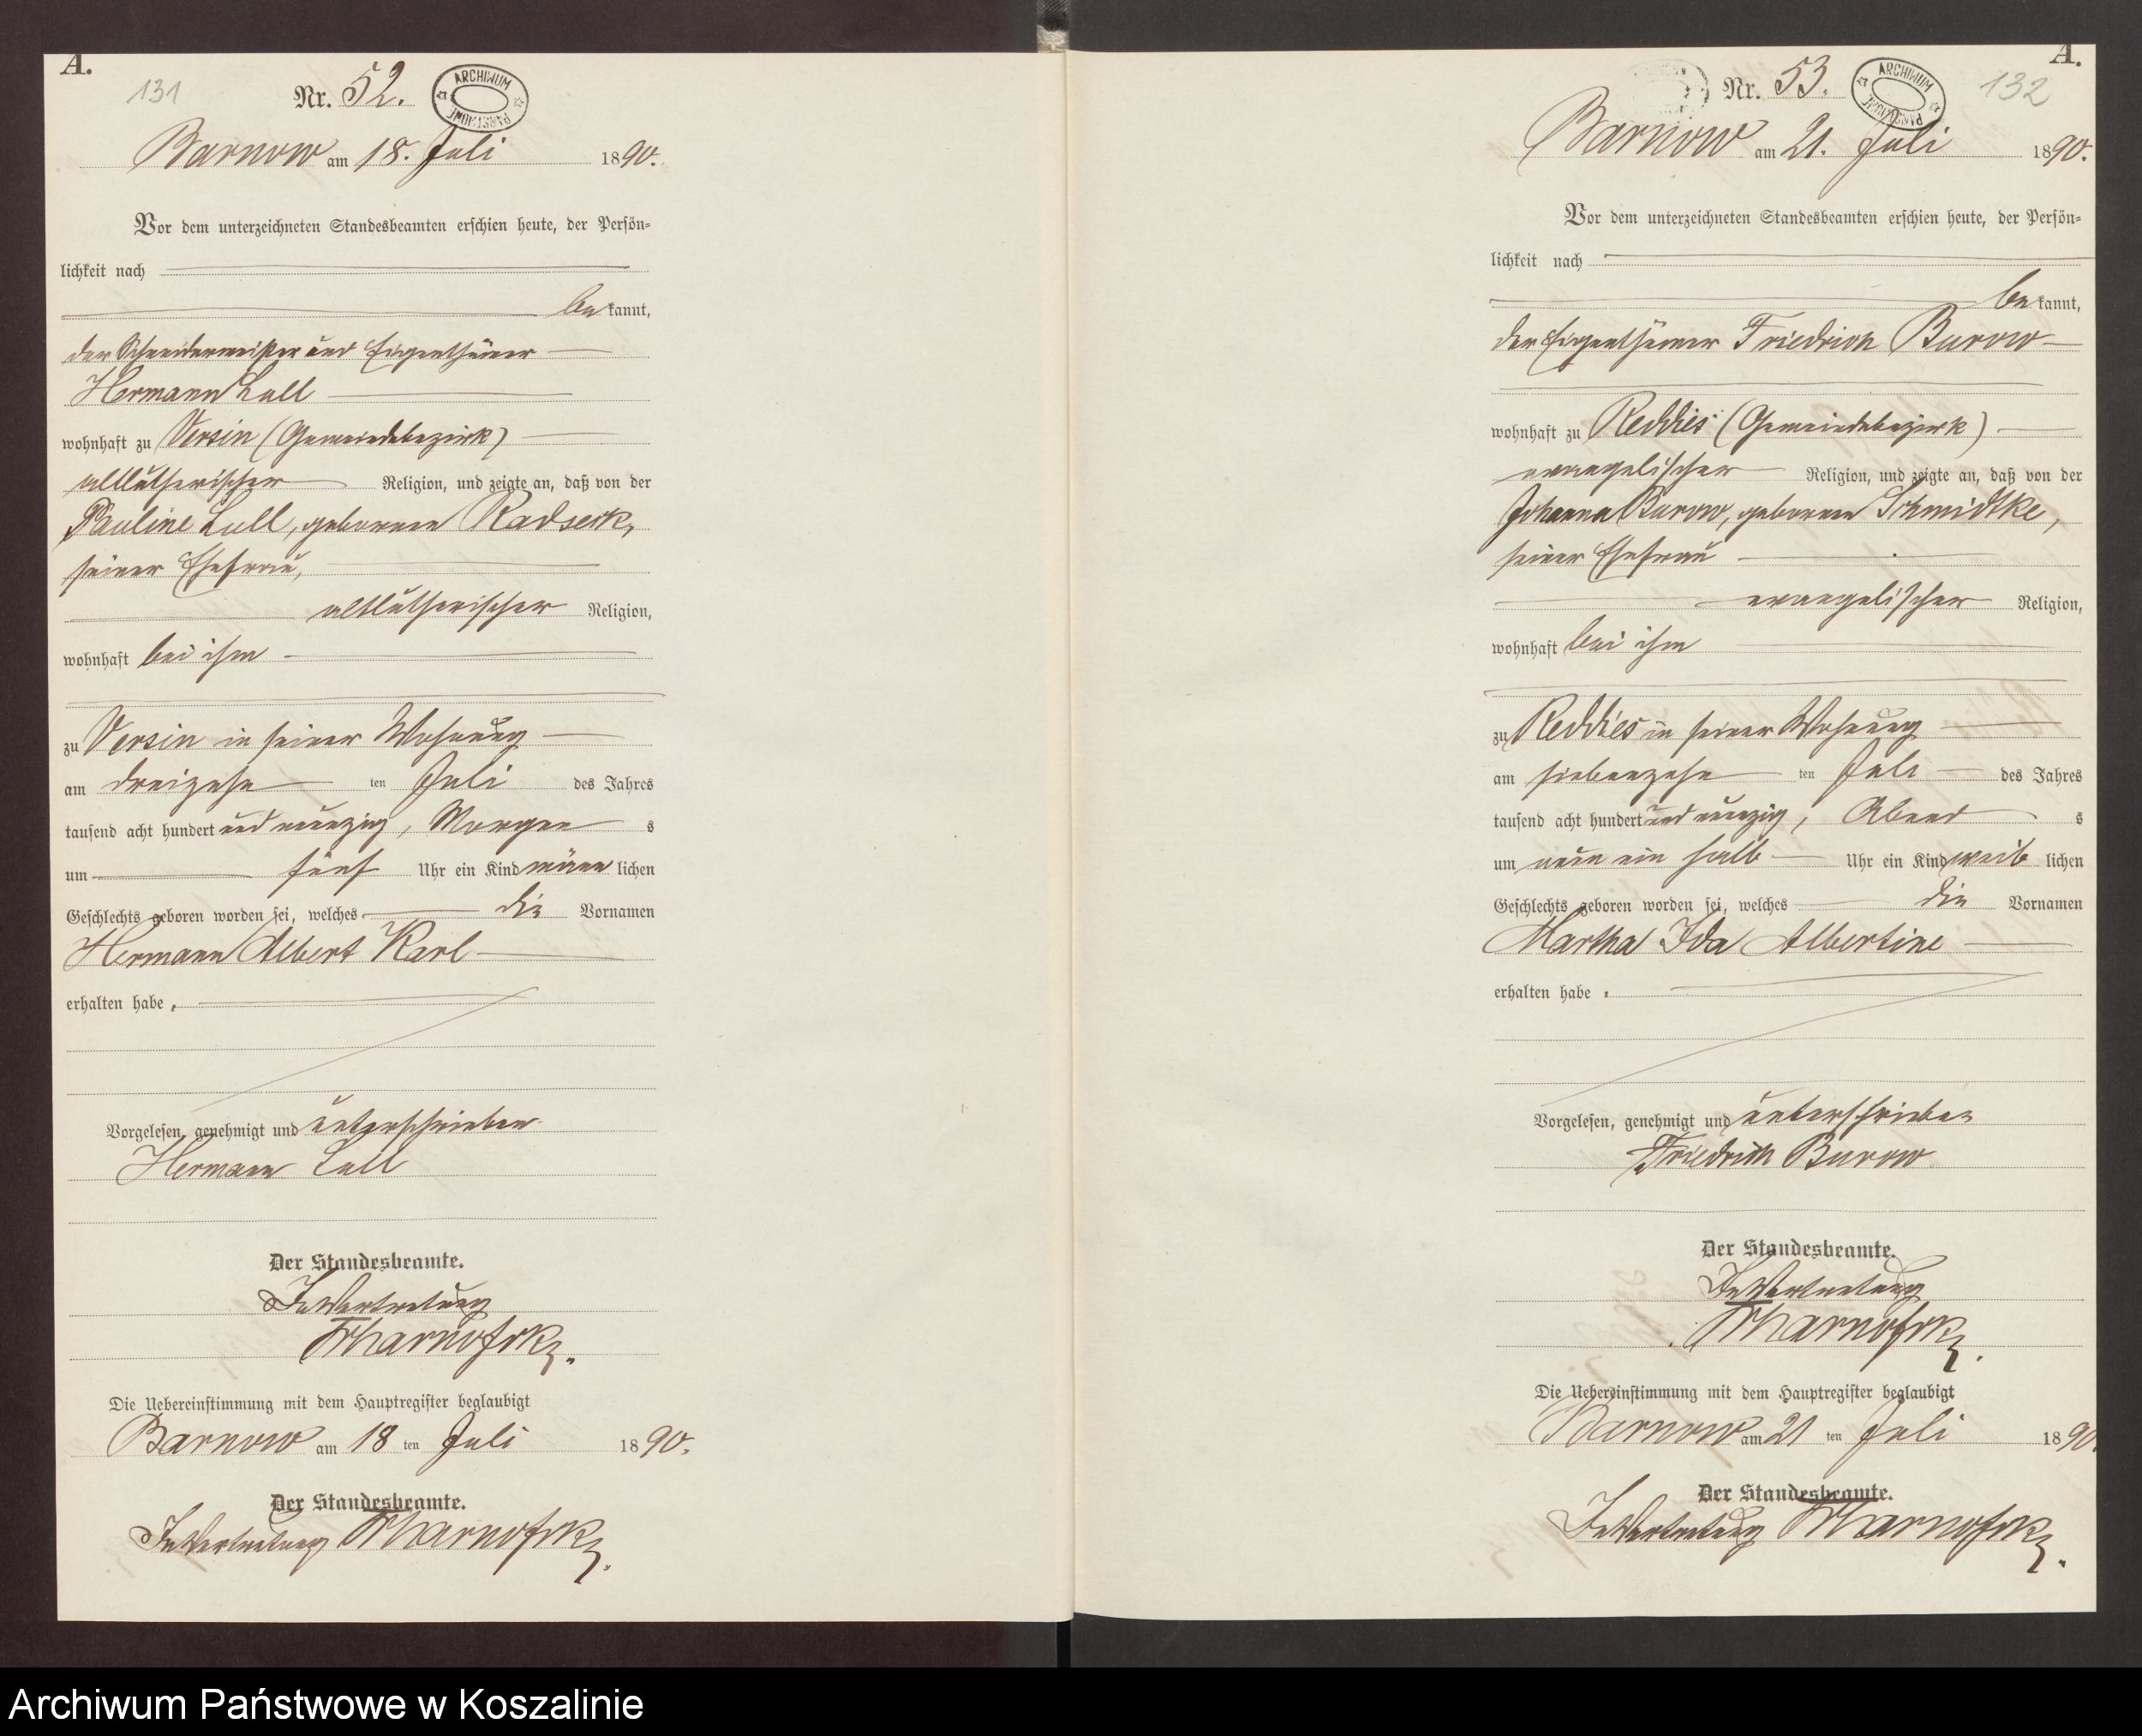 A.
131
Nr. 52.
ARCHIWUM PAŃSTWOWE
Barnow am 18. Juli 1890.
Vor dem unterzeichneten Standesbeamten erschien heute, der Persön-
lichkeit nach
be kannt,
der Schneidermeister und Eigenthümer
Hermann Lull
wohnhaft zu Versin (Gemeindebezirk)
altlutherischer Religion, und zeigte an, daß von der
Pauline Lull, geborenen
seiner Ehefrau,
altlutherischer Religion,
wohnhaft bei ihm
zu Versin in seiner Wohnung
am dreizehn ten Juli des Jahres
tausend acht hundert und neunzig, Morgen s
um fünf Uhr ein Kind männ lichen
Geschlechts geboren worden sei, welches die Vornamen
Hermann Albert Karl
erhalten habe.
Vorgelesen, genehmigt und unterschrieben
Hermann Lull
Der Standesbeamte.
In Vertretung
Die Uebereinstimmung mit dem Hauptregister beglaubigt
Barnow am 18 ten Juli 1890.
Der Standesbeamte.
In Vertretung
A.
132
Nr. 53.
ARCHIWUM PAŃSTWOWE
Barnow am 21. Juli 1890.
Vor dem unterzeichneten Standesbeamten erschien heute, der Persön-
lichkeit nach
be kannt,
der Eigenthümer Friedrich Burow
wohnhaft zu Reddies (Gemeindebezirk)
evangelischer Religion, und zeigte an, daß von der
Johanna Burow, geborenen Schmidtke,
seiner Ehefrau
evangelischer Religion,
wohnhaft bei ihm
zu Reddies in seiner Wohnung
am siebenzehn ten Juli des Jahres
tausend acht hundert und neunzig, Abend s
um neun ein halb Uhr ein Kind weib lichen
Geschlechts geboren worden sei, welches die Vornamen
Martha Ida Albertine
erhalten habe.
Vorgelesen, genehmigt und unterschrieben
Friedrich Burow
Der Standesbeamte.
In Vertretung
Die Uebereinstimmung mit dem Hauptregister beglaubigt
Barnow am 21 ten Juli 1890.
Der Standesbeamte.
In Vertretung
Archiwum Państwowe w Koszalinie